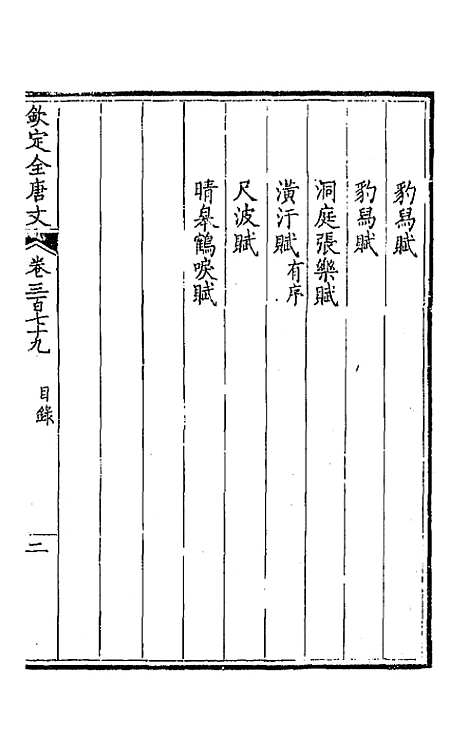 豹舄賦
豹舄賦
洞庭張樂賦
潢汙賦有序
尺波賦
晴皋鶴唳賦
欽定全唐文
卷三百七十九
目錄
二